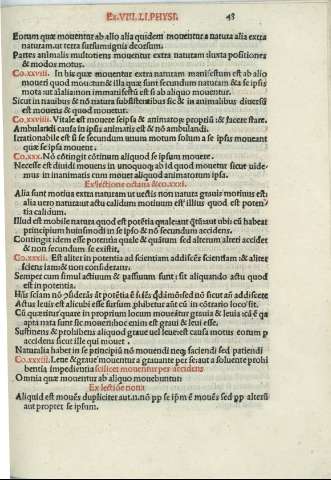 Ex.VIII.LI.PHYSI. 48
Eorum quæ mouentur ab alio alia quidem mouentur a natura alia extra
naturam.ut terra sursum ignis deorsum.
Partes animalis multotiens mouentur extra naturam iuxta positiones
& modos motus.
Co.xxviii. In his quæ mouentur extra naturam manifestum est ab alio
moueri quod mouetur: & illa quæ sunt secundum naturam & a se ipsis
mota aut alia aliorum manifesta est si ab aliquo mouentur.
Sicut in nauibus & nō natura subsistentibus sic & in animalibus diuersū
est mouens & quod mouetur.
Co.xxviiii. Vitale est mouere seipsa & animatoꝝ propriū: & facere stare.
Ambulandi causa in ipsis animatis est & nō ambulandi.
Irrationabile est si secundum unum motum solum a se ipsis moueant
quæ se ipsa mouent.
Co.xxx. Nō cōtingit cōtinuum aliquod se ipsum mouere.
Necesse est diuidi mouens in unoquoq; ab id quod mouetur sicut uide-
mus in inanimatis cum mouet aliquod animatorum ipsa.
Ex lectione octaua & co.xxxi.
Alia sunt motiua extra naturam ut uectis non natura grauis motiuus est:
alia uero natura ut actu calidum motiuum est illius quod est poten-
tia calidum.
Illud est mobile natura quod est pōtētia quale aut q̄tū aut ubi cū habeat
principium huiusmodi in se ipso & nō secundum accidens.
Contingit idem esse potentia quale & quātum sed alterum alteri accidet
& non secundum se existit.
Co.xxxii. Est aliter in potentia ad scientiam addiscēs scientiam: & aliter
sciens iam & non considerans.
Semper cum simul actiuum & passiuum sunt: fit aliquando actu quod
est in potentia.
Actus leuis est alicubi esse sursum phibetur aut cū in cōtrario loco sit.
apta nata sunt sic moueri: hoc enim est graui & leui esse.
Sustinens & prohibens aliquod graue uel leue est causa motus eorum p
accidens sicut ille qui mouet.
Naturalia habet in se principiū nō mouendi neq; faciendi sed patiendi
Co.xxxiii. Leue & graue mouentur a generante per se: aut a soluente prohi
bentia impedientia scilicet mouentur per accidens
Omnia quæ mouentur ab aliquo mouebuntur
Ex lectione nona
Aliquid est mouēs dupliciter aut.n. nō pp se ipm ē mouēs sed pp alterū
aut propter se ipsum.